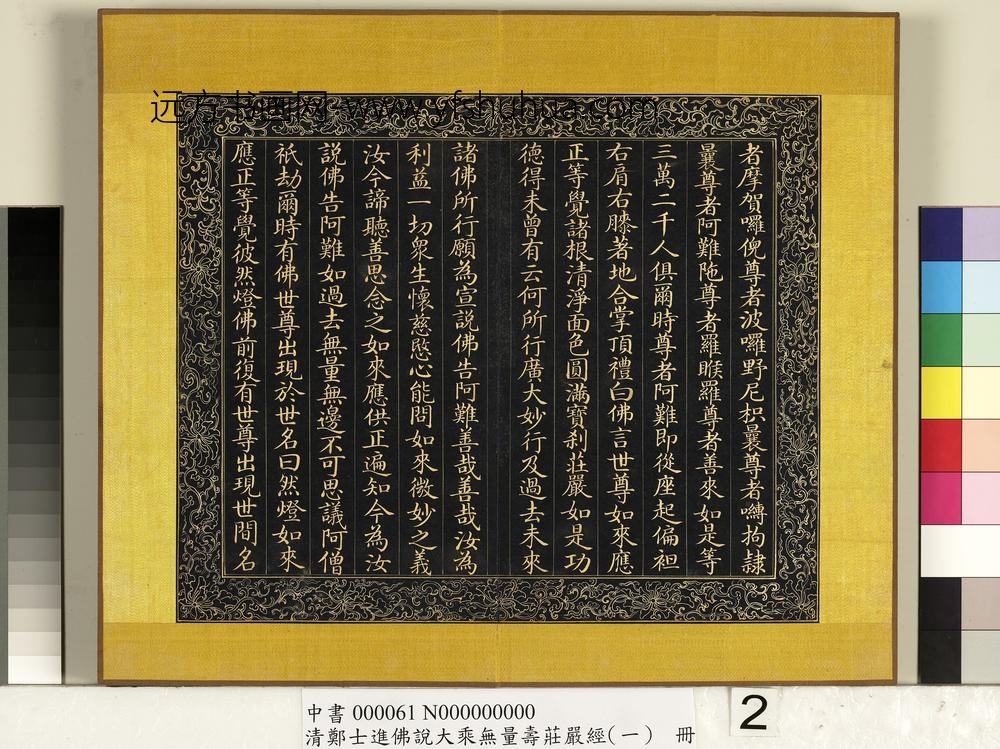 远方书画网 www.yfshuhua.com
者摩賀囉倪尊者波囉野尼枳曩尊者嚩拘隸
曩尊者阿難陁尊者羅睺羅尊者善來如是等
三萬二千人俱爾時尊者阿難即從座起偏袒
右肩右膝著地合掌頂禮白佛言世尊如來應
正等覺諸根清淨面色圓滿寶刹莊嚴如是功
德得未曾有云何所行廣大妙行及過去未來
諸佛所行願為宣說佛告阿難善哉善哉汝為
利益一切衆生懷慈愍心能問如來微妙之義
汝今諦聽善思念之如來應供正遍知今為汝
說佛告阿難如過去無量無邊不可思議阿僧
祇劫爾時有佛世尊出現於世名曰然燈如來
應正等覺彼然燈佛前復有世尊出現世間名
中書 000061 N000000000
清鄭士進佛說大乘無量壽莊嚴經(一) 冊
2